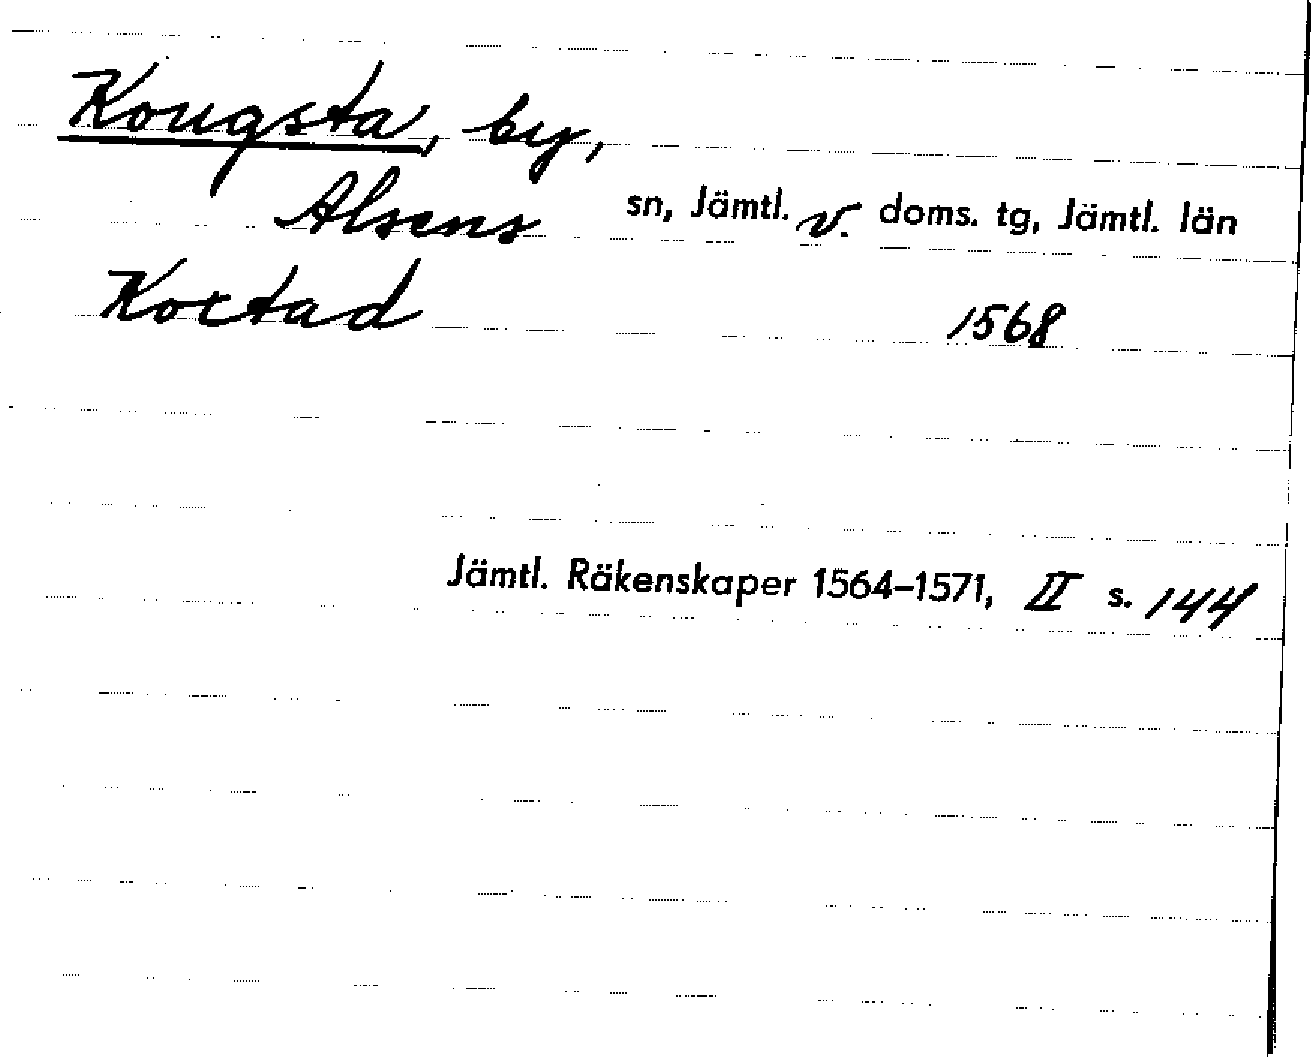 Kougsta, by,
Alsens sn, Jämtl. v. doms. tg, Jämtl. län
Koxtad 1568
Jämtl. Räkenskaper 1564–1571, II s. 144